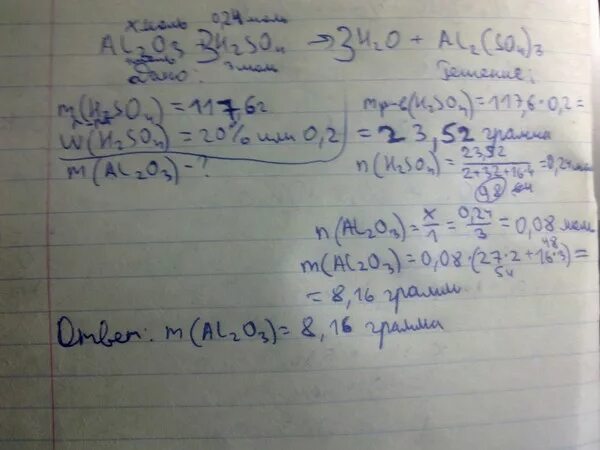 x моль 0,24 моль
Al₂O₃ + 3H₂SO₄ → 3H₂O + Al₂(SO₄)₃
3 моль
Дано:
Решение:
m(H₂SO₄) = 117,6г
W(H₂SO₄) = 20% или 0,2
m(Al₂O₃) - ?
m р-в(H₂SO₄) = 117,6·0,2 =
= 23,52 грамма
n(H₂SO₄) = 23,52 / 2+32+16·4 = 0,24 моль
98
n(Al₂O₃) = x/1 = 0,24/3 = 0,08 моль
m(Al₂O₃) = 0,08·(27·2+16·3) =
54 48
= 8,16 грамм
Ответ: m(Al₂O₃) = 8,16 грамма